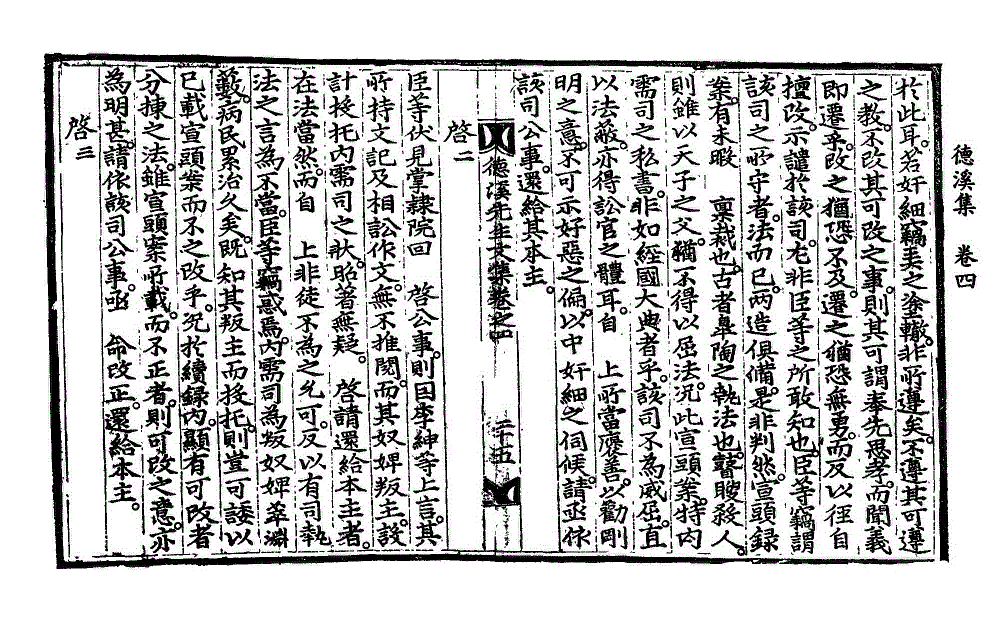 德溪集 卷四
於此耳。若奸細竊弄之塗轍。非所遵矣。不遵其可遵
之教。不改其可改之事。則其可謂奉先思孝。而聞義
即遷乎。改之猶恐不及。遷之猶恐無勇。而反以徑自
擅改。示譴於該司。尤非臣等之所敢知也。臣等竊謂
該司之所守者。法而已。兩造俱備。是非判然。宣頭錄
案。有未暇 稟裁也。古者皐陶之執法也。瞽瞍殺人。
則雖以天子之父。猶不得以屈法。況此宣頭案。特內
需司之私書。非如經國大典者乎。該司不為威屈。直
以法蔽。亦得訟官之體耳。自 上所當褒善。以勸剛
明之意。不可示好惡之偏。以中奸細之伺候。請亟依
該司公事。還給其本主。
德溪先生文集卷之四 二十五
啓二
臣等伏見掌隷院回 啓公事。則因李紳等上言。其
所持文記及相訟作文。無不推閱。而其奴婢叛主。設
計投托內需司之狀。昭著無疑。 啓請還給本主者。
在法當然。而自 上非徒不為之允可。反以有司執
法之言為不當。臣等竊惑焉。內需司為叛奴婢萃淵
藪。病民累治久矣。旣知其叛主而投托。則豈可諉以
已載宣頭案而不之改乎。況於續錄內。顯有可改者
分揀之法。雖宣頭案所載。而不正者。則可改之意。亦
為明甚。請依該司公事。亟 命改正。還給本主。
啓三